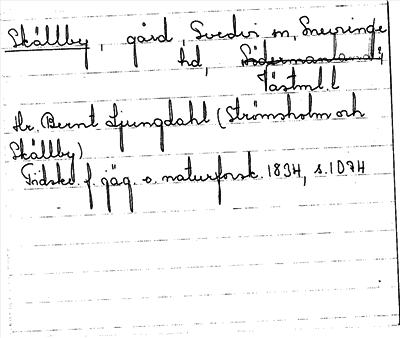 Skållby, gård, Svedvi sn, Snevringe
hd, Södermanland,
Västml. l
Hr. Bernt Ljungdahl (Strömsholm och
Skållby)
Tidskr. f. jäg. o. naturforsk. 1834, s. 1074